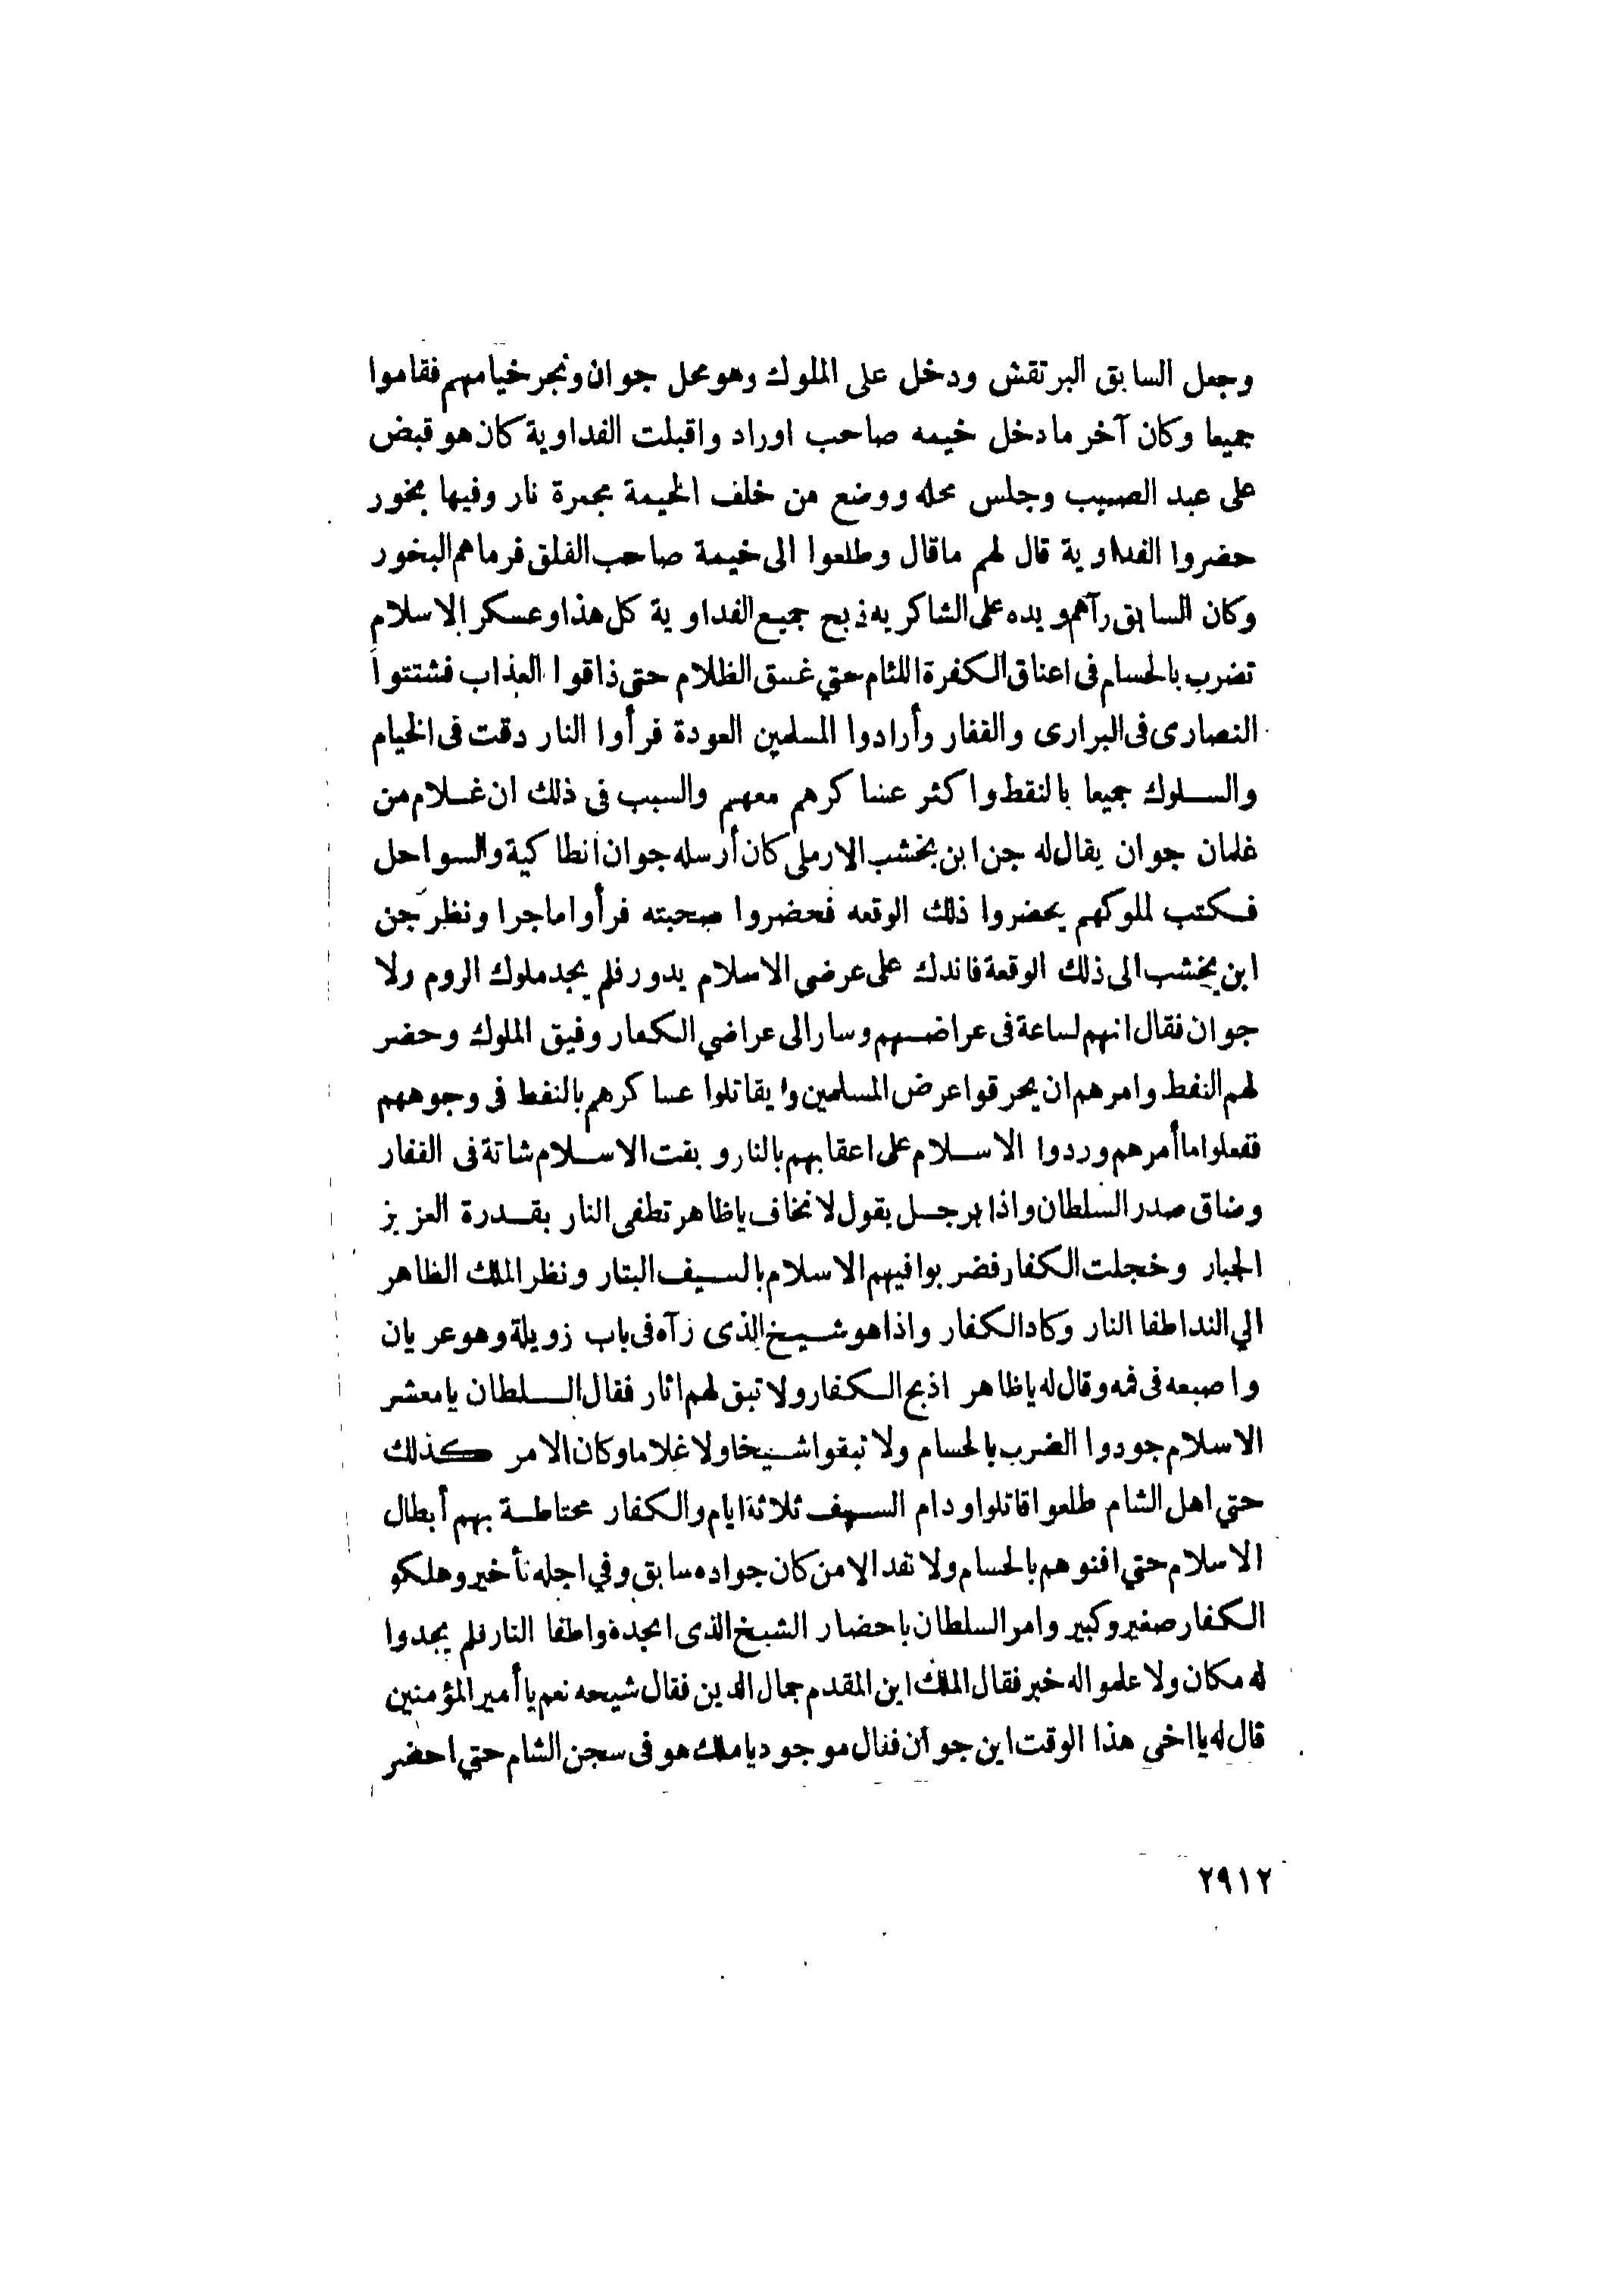 وجعل السابق البرتقش ودخل على الملوك وهو محل جوان ونجر خيامهم فقاموا
جميعا وكان آخر ما دخل خيمه صاحب اوراد واقبلت الفداوية كان هو قبض
على عبد الصيب وجلس محله ووضع من خلف الخيمة مجمرة نار وفيها بخور
حضروا الفداوية قال لهم ماقال وطلعوا الى خيمة صاحب الفلق فرماهم البخور
وكان السابق رآهم ويده على الشاكريه ذبح جميع الفداوية كل هذا وعسكر الاسلام
تضرب بالحسام فى اعناق الكفرة اللئام حتي غسق الظلام حتى ذاقوا العذاب فشتتوا
النصارى فى البرارى والقفار وأرادوا المسلمين العودة فرأوا النار دقت فى الخيام
والسلوك جميعا بالنقط واكثر عساكرهم معهم والسبب فى ذلك ان غلام من
غلمان جوان يقال له جن ابن بخشب الارملى كان أرسله جوان انطاكية والسواحل
فكتب لملوكهم يحضروا ذلك الوقعه فحضروا صحبته فرأوا ماجرا ونظر جن
ابن بخشب الى ذلك الوقعة فاندك على عرضي الاسلام يدور فلم يجد ملوك الروم ولا
جوان فقال انهم لساعة فى عراضيهم وسار الى عراضي الكفار وفيق الملوك وحضر
لهم النفط وامرهم ان يحرقوا عرض المسلمين وا يقاتلوا عساكرهم بالنفط فى وجوههم
ففعلوا ما أمرهم وردوا الاسلام على اعقابهم بالنار وبقت الاسلام شاتة فى القفار
وضاق صدر السلطان واذا برجل يقول لا تخاف يا ظاهر تطفى النار بقدرة العزيز
الجبار وخجلت الكفار فضربوا فيهم الاسلام بالسيف البتار ونظر الملك الظاهر
الي الندا طفا النار وكاد الكفار واذا هو شيخ الذى رآه فى باب زويلة وهو عريان
واصبعه فى فمه وقال له يا ظاهر اذبح الكفار ولا تبق لهم اثار فقال السلطان يا معشر
الاسلام جودوا الضرب بالحسام ولا تبقوا شيخا ولا غلاما وكان الامر كذلك
حتي اهل الشام طلعوا قاتلوا ودام السيف ثلاثة ايام والكفار محتاطة بهم أبطال
الاسلام حتي افنوهم بالحسام ولا نفد الا من كان جواده سابق وفي اجله تأخير وهلكو
الكفار صغير وكبير وامر السلطان باحضار الشيخ الذى انجده واطفا النار فلم يجدوا
له مكان ولا علموا له خبر فقال الملك اين المقدم جمال الدين فقال شيحه نعم يا أمير المؤمنين
قال له يا اخي هذا الوقت اين جوان فقال موجود يا ملك هو فى سجن الشام حتي احضر
٢٩١٢